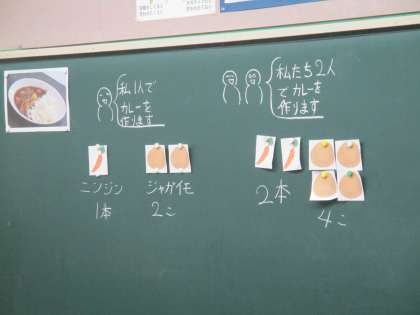 私1人で
カレーを
作ります
ニンジン
1本
ジャガイモ
2こ
私たち2人
でカレーを
作ります
2本
4こ